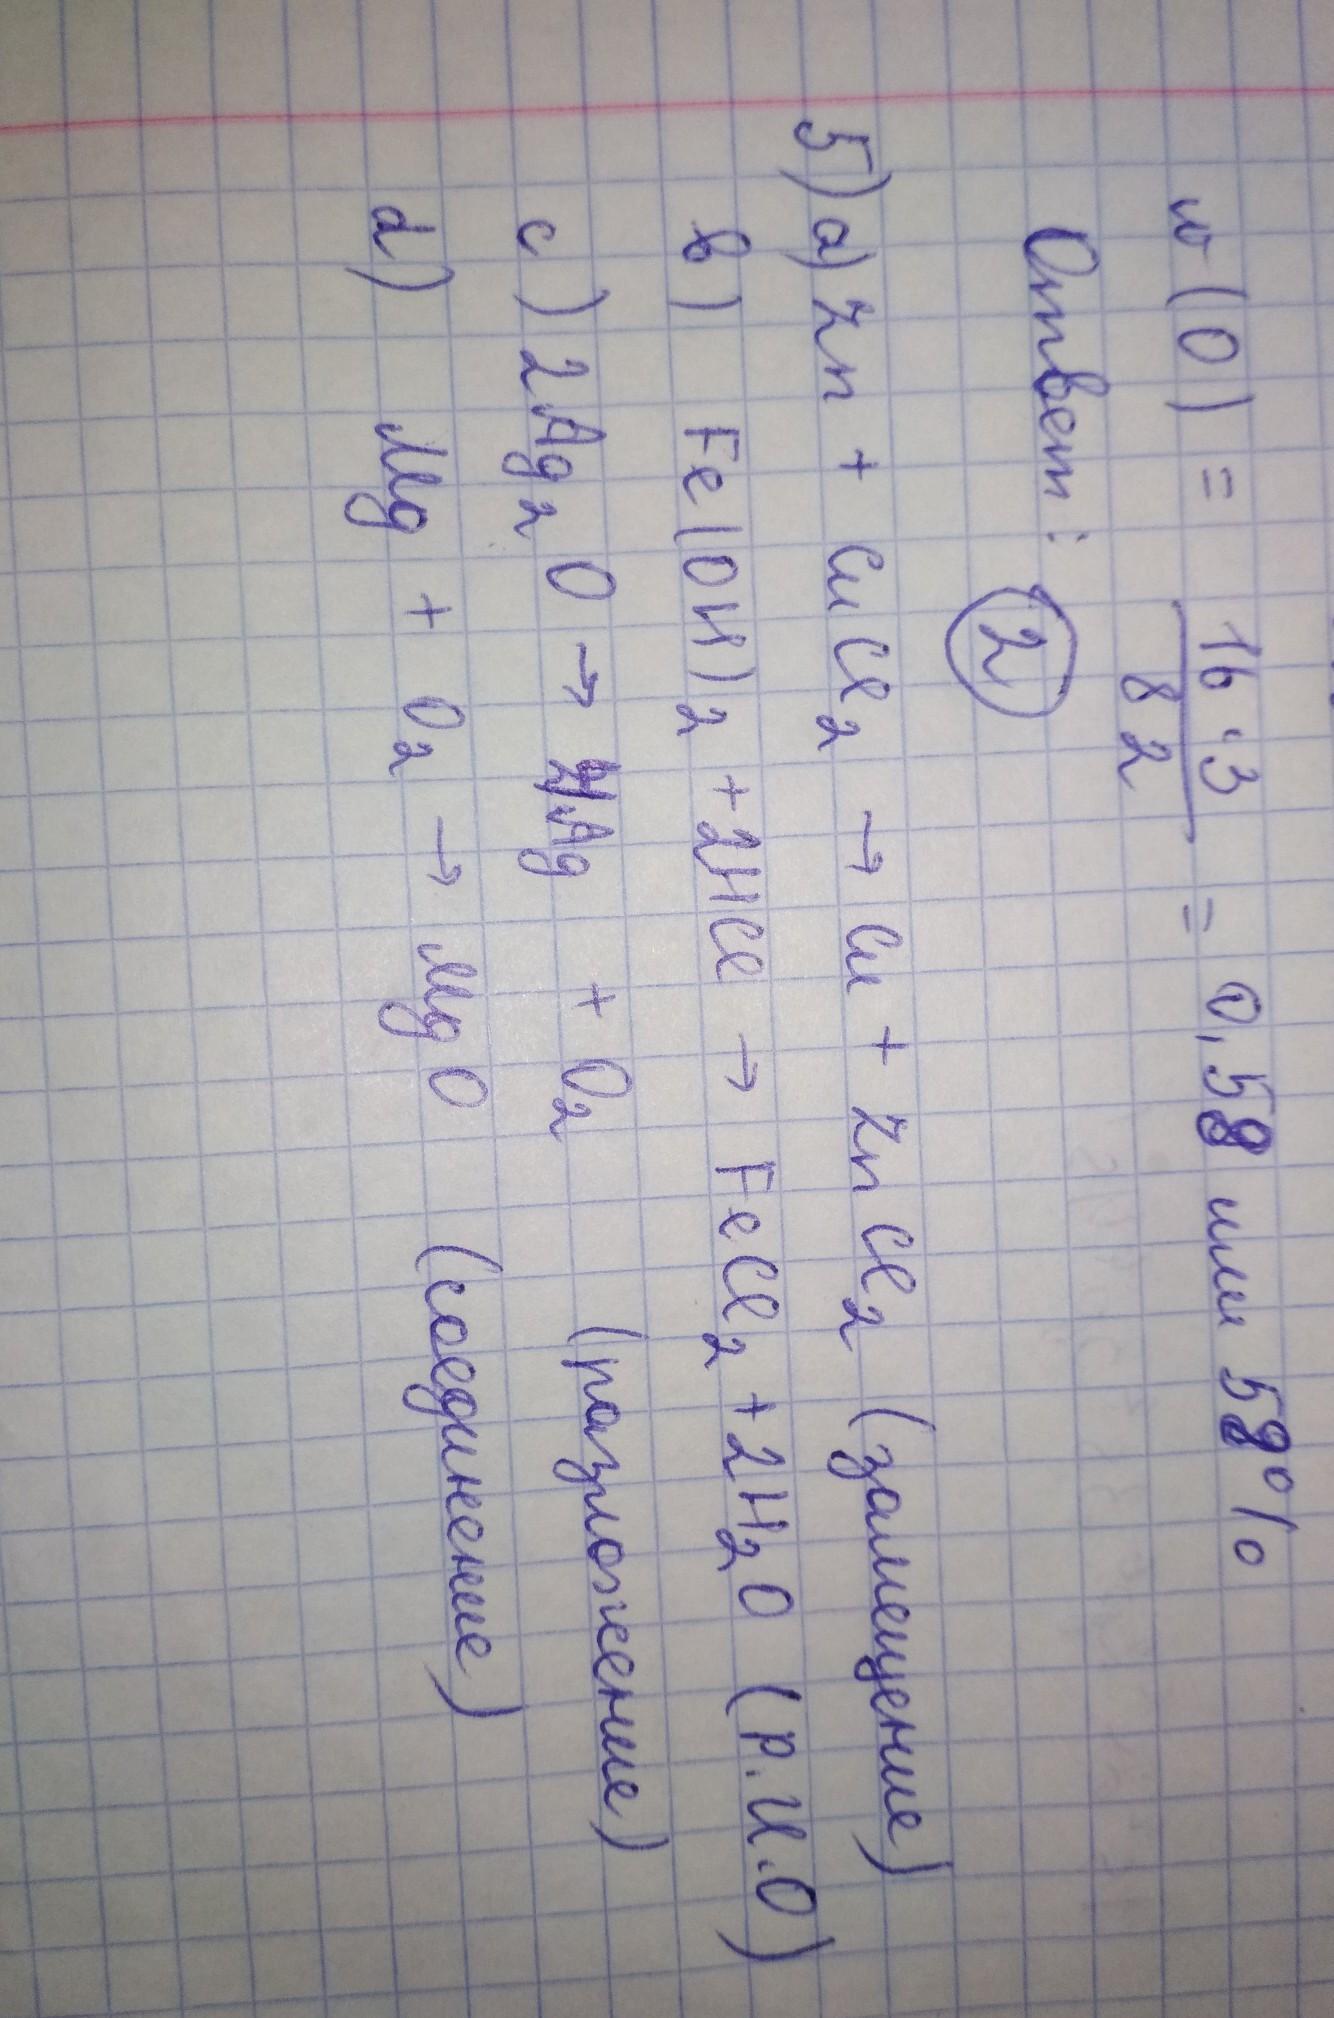 w(O) = 16·3/82 = 0,58 или 58%
Ответ: 2
5) a) Zn + CuCl₂ → Cu + ZnCl₂ (замещение)
b) Fe(OH)₂ + 2HCl → FeCl₂ + 2H₂O (Р.И.О)
c) 2Ag₂O → 4Ag + O₂ (разложение)
d) Mg + O₂ → MgO (соединение)